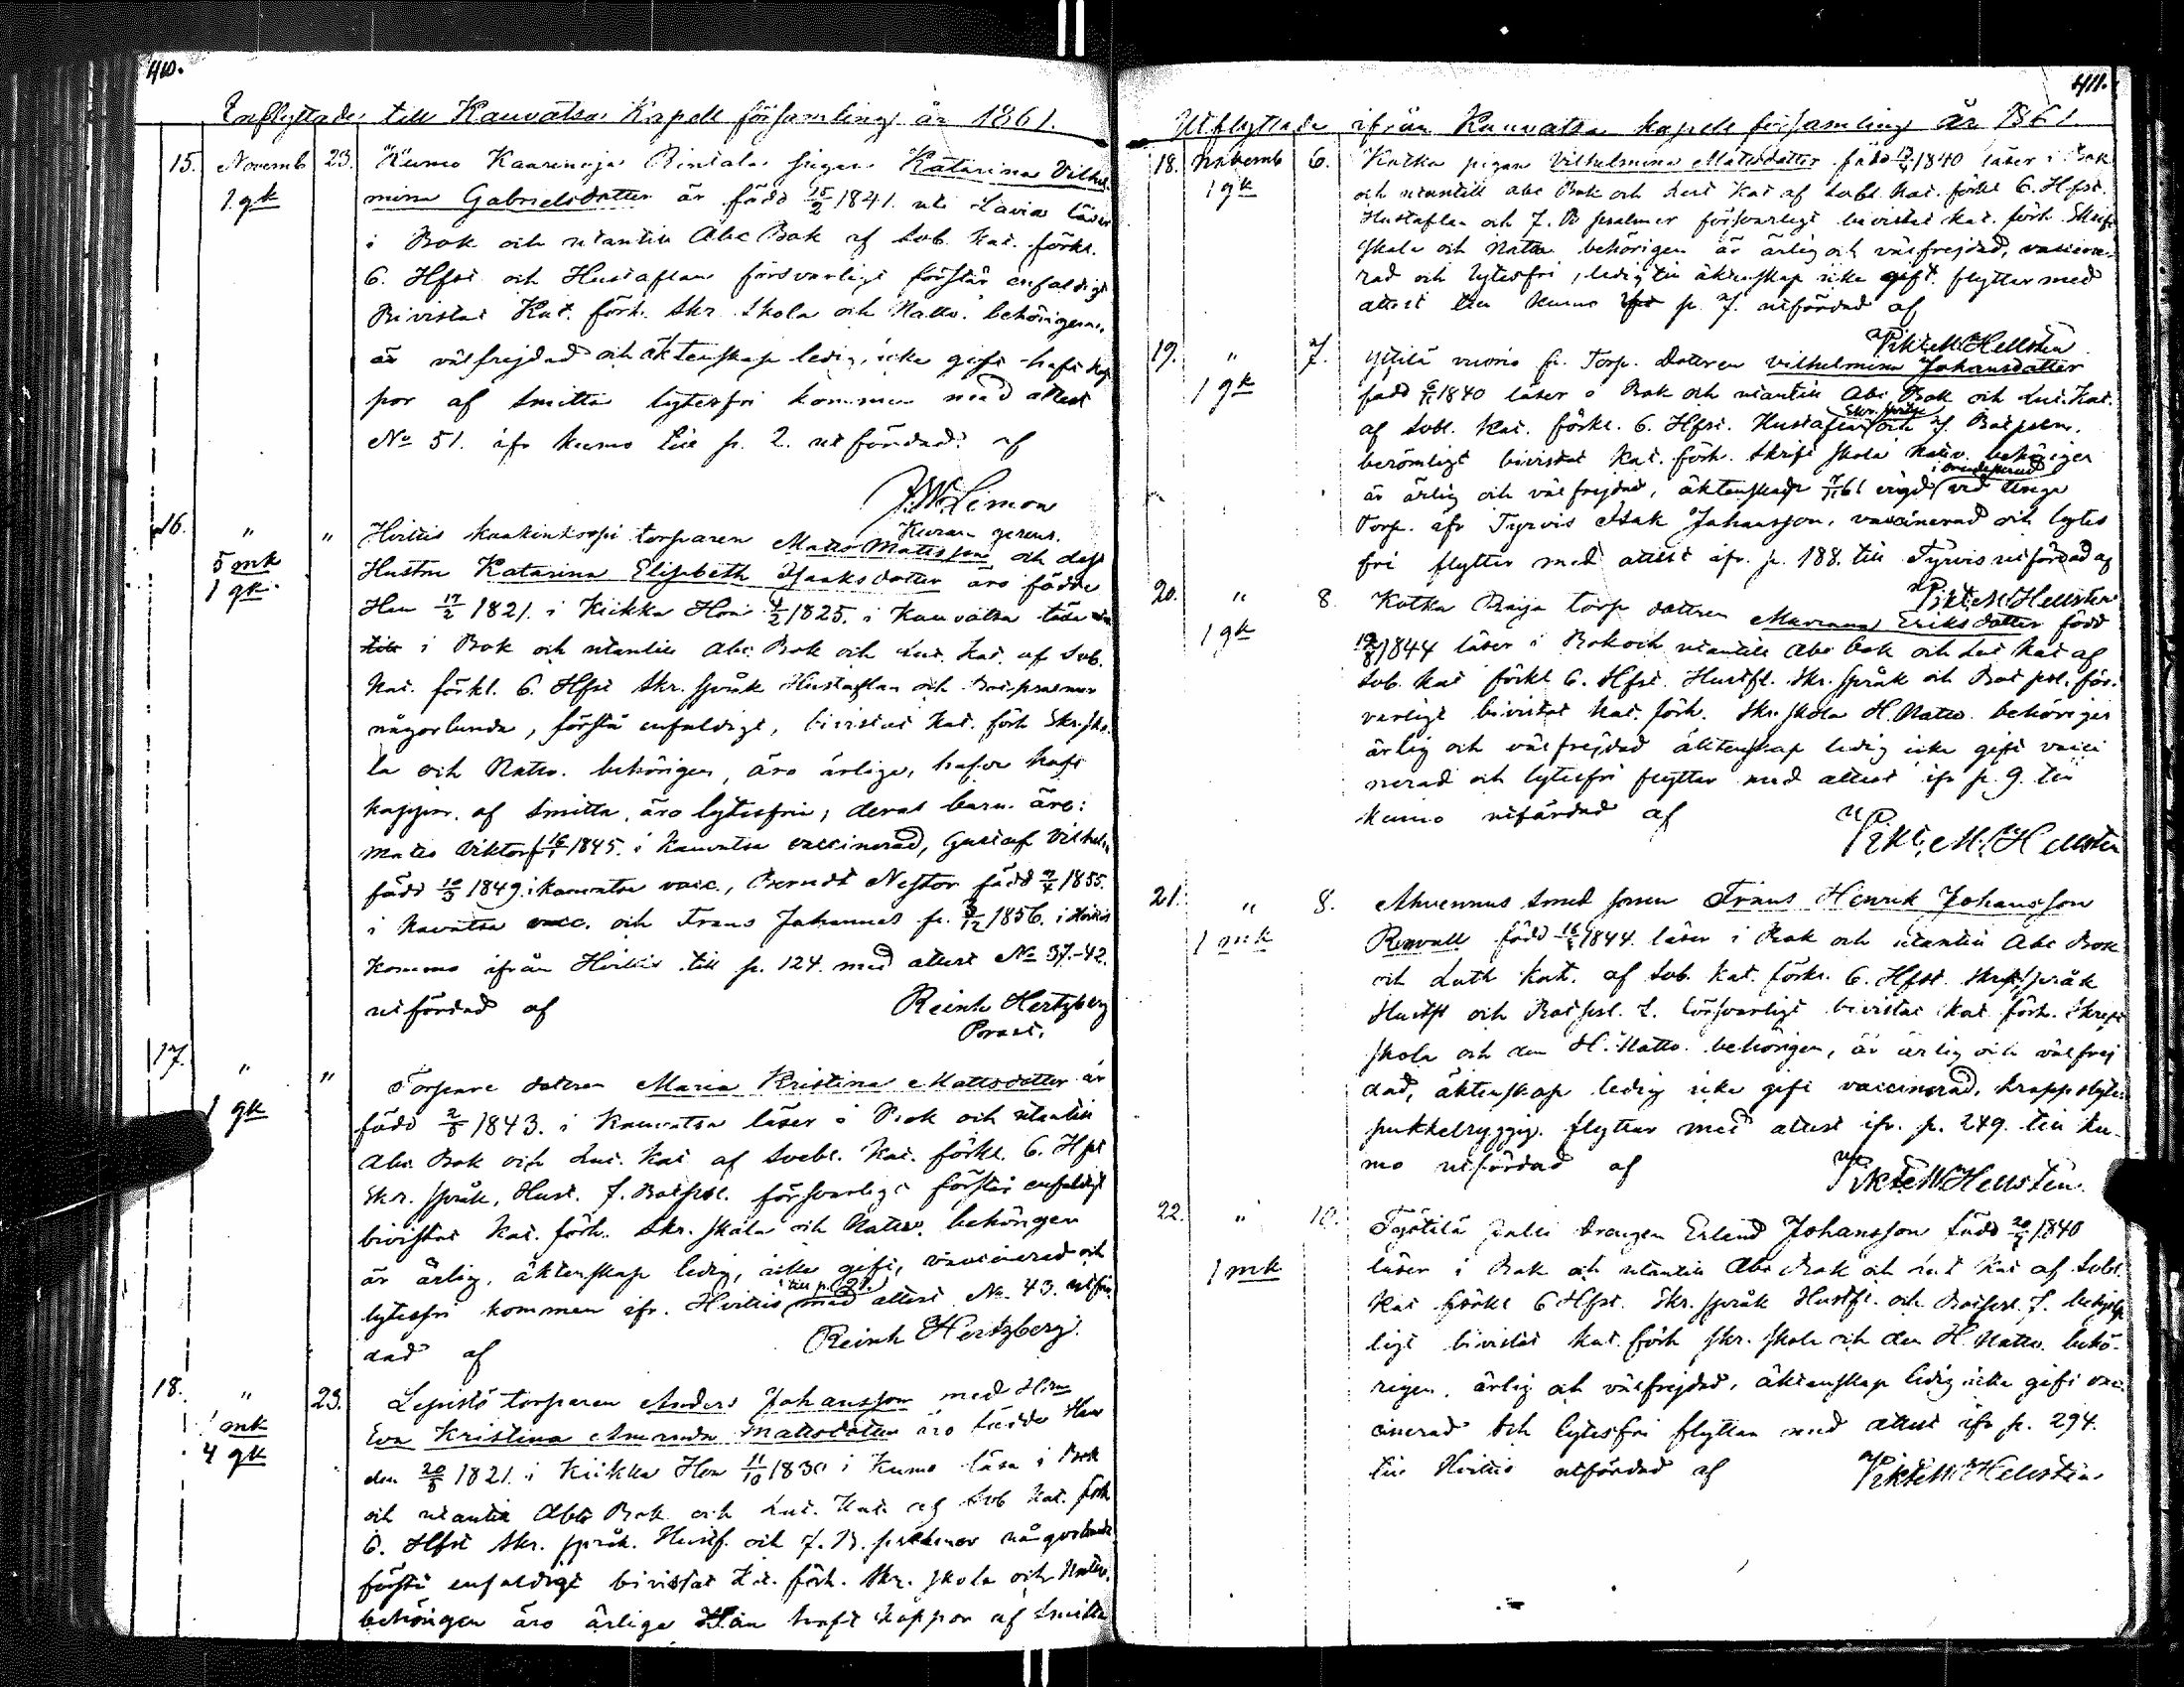 410.
Inflyttade till Kauvatsa Kapell församling år 1861.
15. Novemb 23. Kumo Kaarenoja Rintala pigan Katarina Vilhel-
1 gk mina Gabrielsdotter är född 15/2 1841. uti Lavia läser
i Bok och utantill Abc Bok af Sveb. Kat. förkl.
6. Hfst och Hustaflan försvarligt förstår enfaldigt
Bivistat Kat. förh. Skr. Skola och Nattv. behörigen,
är välfrejdad och äktenskap ledig, icke gift haft kop
por af Smitta lytesfri kommen med attest
No 51. ifr Kumo till p. 2. utfördad af
Simon
16. " " Hvittis torparen Matts Mattsson och dess
5 mk Hustru Katarina Elisabeth Isaksdotter äro födde
1 gk. Han 17/2 1821. i Kiikka Hon 4/2 1825. i Kauvatsa läsa
i Bok och utantill Abc Bok och Lut. Kat. af Sveb.
Kat. förkl. 6. Hfst Skr. språk Hustaflan och Botpsalmer
någorlunda, förstå enfaldigt, bivistat Kat. förh Skr. sko-
la och Nattv. behörigen, äro ärlige, hafva haft
koppor. af Smitta, äro lytesfria; deras barn äro:
Matts Viktor f 16/1 1845. i Kauvatsa vaccinerad, Gustaf Vilhelm
född 10/3 1849. i Kauvatsa vacc., Berndt Nestor född 2/4 1855.
i Kavatsa vacc. och Frans Johannes f. 3/12 1856. i Hvittis
Kommo ifrån Hvittis till p. 124. med attest No 37.-42.
utfördad af Reinh Hertzberg
Prost.
17. " " Torpare dottren Maria Kristina Mattsdotter är
1 gk född 2/8 1843. i Kauvatsa läser i Bok och utantill
Abc Bok och Lut. Kat af Svebl. Kat. förkl. 6. Hfst
Skr. språk, Hust. 7. Botpsl. försvarligt förstår enfaldigt
bivistat Kat. förh. Skr. skola och Nattv. behörigen
är ärlig, äktenskap ledig, icke gift, vaccinerad och
till p. 21.
lytesfri kommen ifr. Hvittis med attest No. 43. utför-
dad af Reinh Hertzberg.
18. " 23. Lepistö torparen Anders Johansson med Hru
1 mk Eva Kristina Amanda Mattsdotter äro födde Han
4 gk den 20/8 1821. i Kiikka Hon 11/10 1830 i Kumo läsa i Bok
och utantill Abc Bok och Lut. Kat. af Sveb Kat. förk
6. Hfst Skr. språk. Hustf. och 7. B. psalmer någorlunda
förstå enfaldigt bivistat Kat. förh. Skr. skola och Nattv.
behörigen äro ärliga Han haft koppor af Smitta
411.
Utflyttade ifrån Kauvatsa kapell församling År 1861.
18. Novemb 6. Katka pigan Vilhelmina Mattsdotter född 1840 läser i Bok
1 gk och utantill abc Bok och Lut Kat af Svebl Kat. förkl 6. Hfst.
Hustaflan och 7. B psalmer försvarligt bivistat kat. förh. Skrift
skola och Nattv behörigen är ärlig och välfrejdad, vaccine-
rad och lytesfri, ledig till äktenskap icke gift. flyttar med
attest till Kumo p. 7. utfördad af
M. Hellsten
19. " 7. Yttilä Torp. Dottren Vilhelmina Johansdotter
1 gk född 1840 läser i Bok och utantill Abc Bok och Lut. Kat.
Skr. språk
af Svebl. Kat. förkl. 6. Hfst. Hustaflan och 7. Botpsalm.
berömligt bivistat Kat. förh. Skrift skola Nattv. behörigen
är ärlig och välfrejdad, äktenskap 61 vigd vid unge
Torp. ifr Tyrvis Isak Johansson, vaccinerad och lytes
fri flytter med attest ifr. p. 188. till Tyrvis utfördad af
M. Hellsten
20. " 8. Katka Raija torp dottren Marianna Eriksdotter född
1 gk 19/8 1844 läser i Bok och utantill Abc bok och Lut Kat af
Sveb. Kat förkl 6. Hfst. Hustfl. Skr. språk och Bot psl. för-
varligt bivistat Kat. förh. Skr. skola H. Nattv. behörigen
ärlig och välfrejdad äktenskap ledig icke gift vacci
nerad och lytesfri flytter med attest ifr p. 9. till
Kumo utfärdad af M. Hellsten
21. " 8. Ahvennus Smed sonen Frans Henrik Johansson
1 mk Renvall född 1844. läser i Bok och utantill Abc Bok
och Luth Kat. af Sveb. Kat. förkl. 6. Hfst. Skr. språk
Hustfl och Botpsl. 7. försvarligt bivistat Kat förh. Skrift
skola och den H. Nattv. behörigen, är ärlig och välfrej
dad, äktenskap ledig icke gift vaccinerad,
pukkelryggig. flyttar med attest ifr. p. 249. till Ku-
mo utfördad af M. Hellsten.
22. " 10. drängen Erland Johansson född 1840
1 mk läser i Bok och utantill Abc Bok och Lut Kat af Svebl.
Kat förkl 6 Hfst. Skr. språk Hustfl. och Botpsl. 7.
ligt bivistat Kat. förh Skr. skola och den H. Nattv. behö-
rigen. ärlig och välfrejdad, äktenskap ledig icke gift vac-
cinerad och lytesfri flyttar med attest ifr p. 294.
till Hvittis utfördad af M. Hellsten